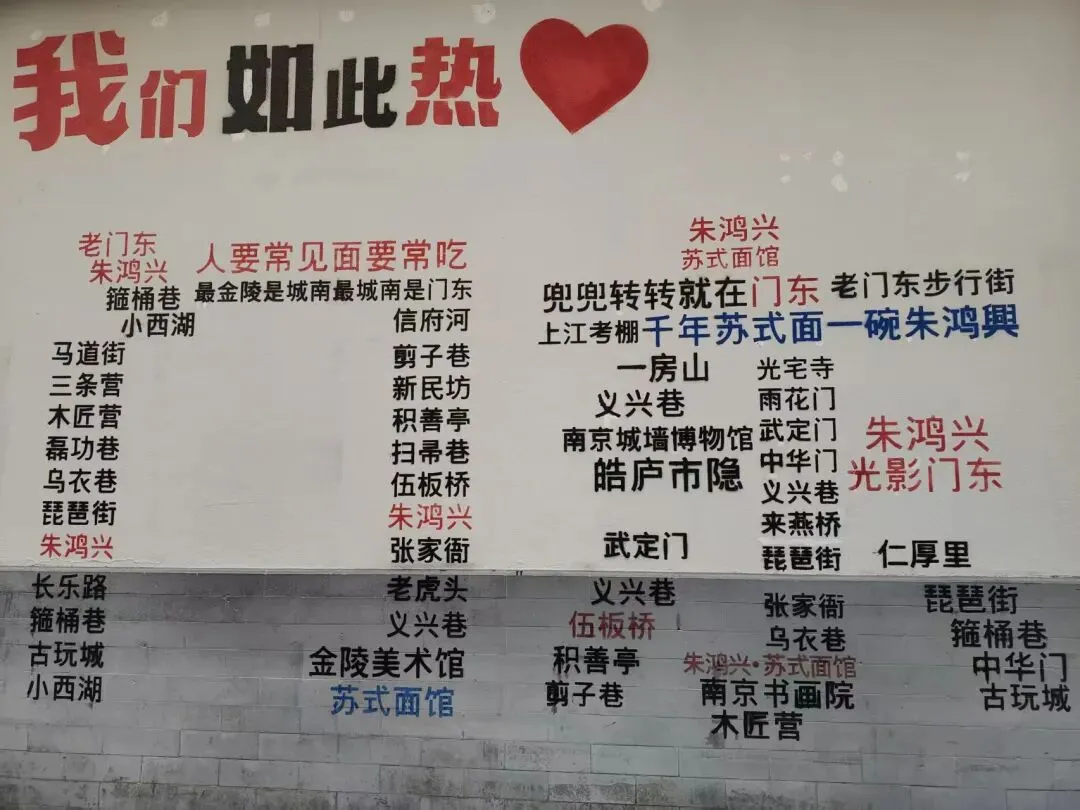 我们如此热
老门东
朱鸿兴
箍桶巷
小西湖
人要常见面要常吃
最金陵是城南最城南是门东
马道街
三条营
木匠营
磊功巷
乌衣巷
琵琶街
朱鸿兴
长乐路
箍桶巷
古玩城
小西湖
信府河
剪子巷
新民坊
积善亭
扫帚巷
伍板桥
朱鸿兴
张家衙
老虎头
义兴巷
金陵美术馆
苏式面馆
朱鸿兴
苏式面馆
兜兜转转就在门东 老门东步行街
上江考棚 千年苏式面一碗朱鸿興
一房山
义兴巷
南京城墙博物馆
皓庐市隐
武定门
义兴巷
伍板桥
积善亭
剪子巷
光宅寺
雨花门
武定门
中华门
义兴巷
来燕桥
琵琶街
张家衙
乌衣巷
朱鸿兴·苏式面馆
南京书画院
木匠营
朱鸿兴
光影门东
仁厚里
琵琶街
箍桶巷
中华门
古玩城